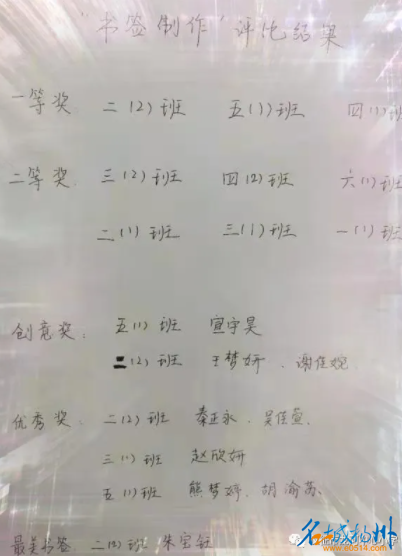 "书签制作"评比结果
一等奖 二(2)班 五(1)班 四(1)班
二等奖 三(2)班 四(2)班 六(1)班
二(1)班 三(1)班 一(1)班
创意奖: 五(1)班 宣宇昊
二(2)班 王梦妍、谢佳婉
优秀奖 二(2)班 秦正永、吴佳萱、
三(1)班 赵欣妍
五(1)班 熊梦婷、胡渝
最美书签 二(2)班 朱宝钰
名城扬州
www.e0514.com